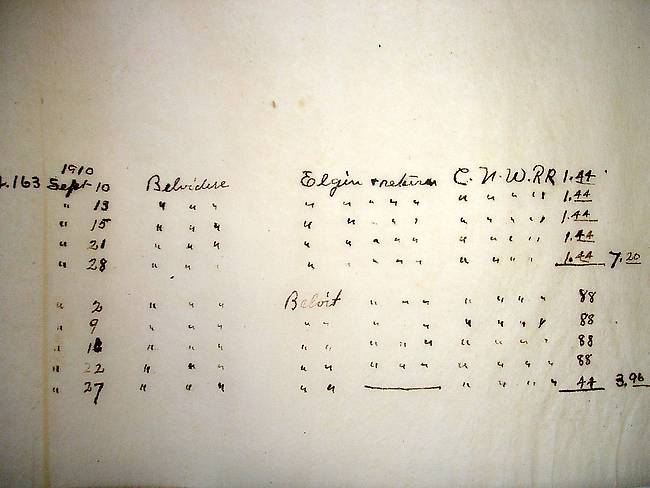 1910
163 Sept 10 Belvidere Elgin & return C. N. W. RR 1.44
" 13 " " " " " " " " " " " " 1.44
" 15 " " " " " " " " " " " " 1.44
" 21 " " " " " " " " " " " " 1.44
" 28 " " " " " " " " " " " " 1.44 7.20
" 2 " " " Beloit " " " " " " " 88
" 9 " " " " " " " " " " " " 88
" " " " " " " " " " " " " 88
" 22 " " " " " " " " " " " " 88
" 27 " " " " " " " " " 44 3.96